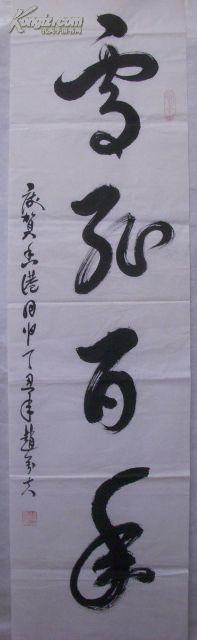 雪耻百年
庆贺香港回归丁丑年赵

Kongfz.com
孔夫子旧书网